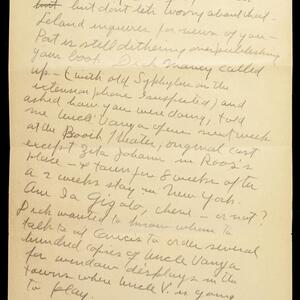 but don't let's worry about that.
Leland inquires for news of you —
Pat is still dithering over publishing
your book. Dick Maney called
up — (with old Syphylus on the
extension phone I suspected) and
asked how you were doing, told
me Uncle Vanya opens next week
at the Booth Theater, original cast
except Zita Johann in Roos's
Place & tours for 8 weeks after
a 2 weeks stay in New York.
Am I a Gigolo, chere — or not?
Dick wanted to know whom to
talk to at Covicis to order several
hundred copies of Uncle Vanya
for window displays in the
towns where Uncle V. is going
to play.